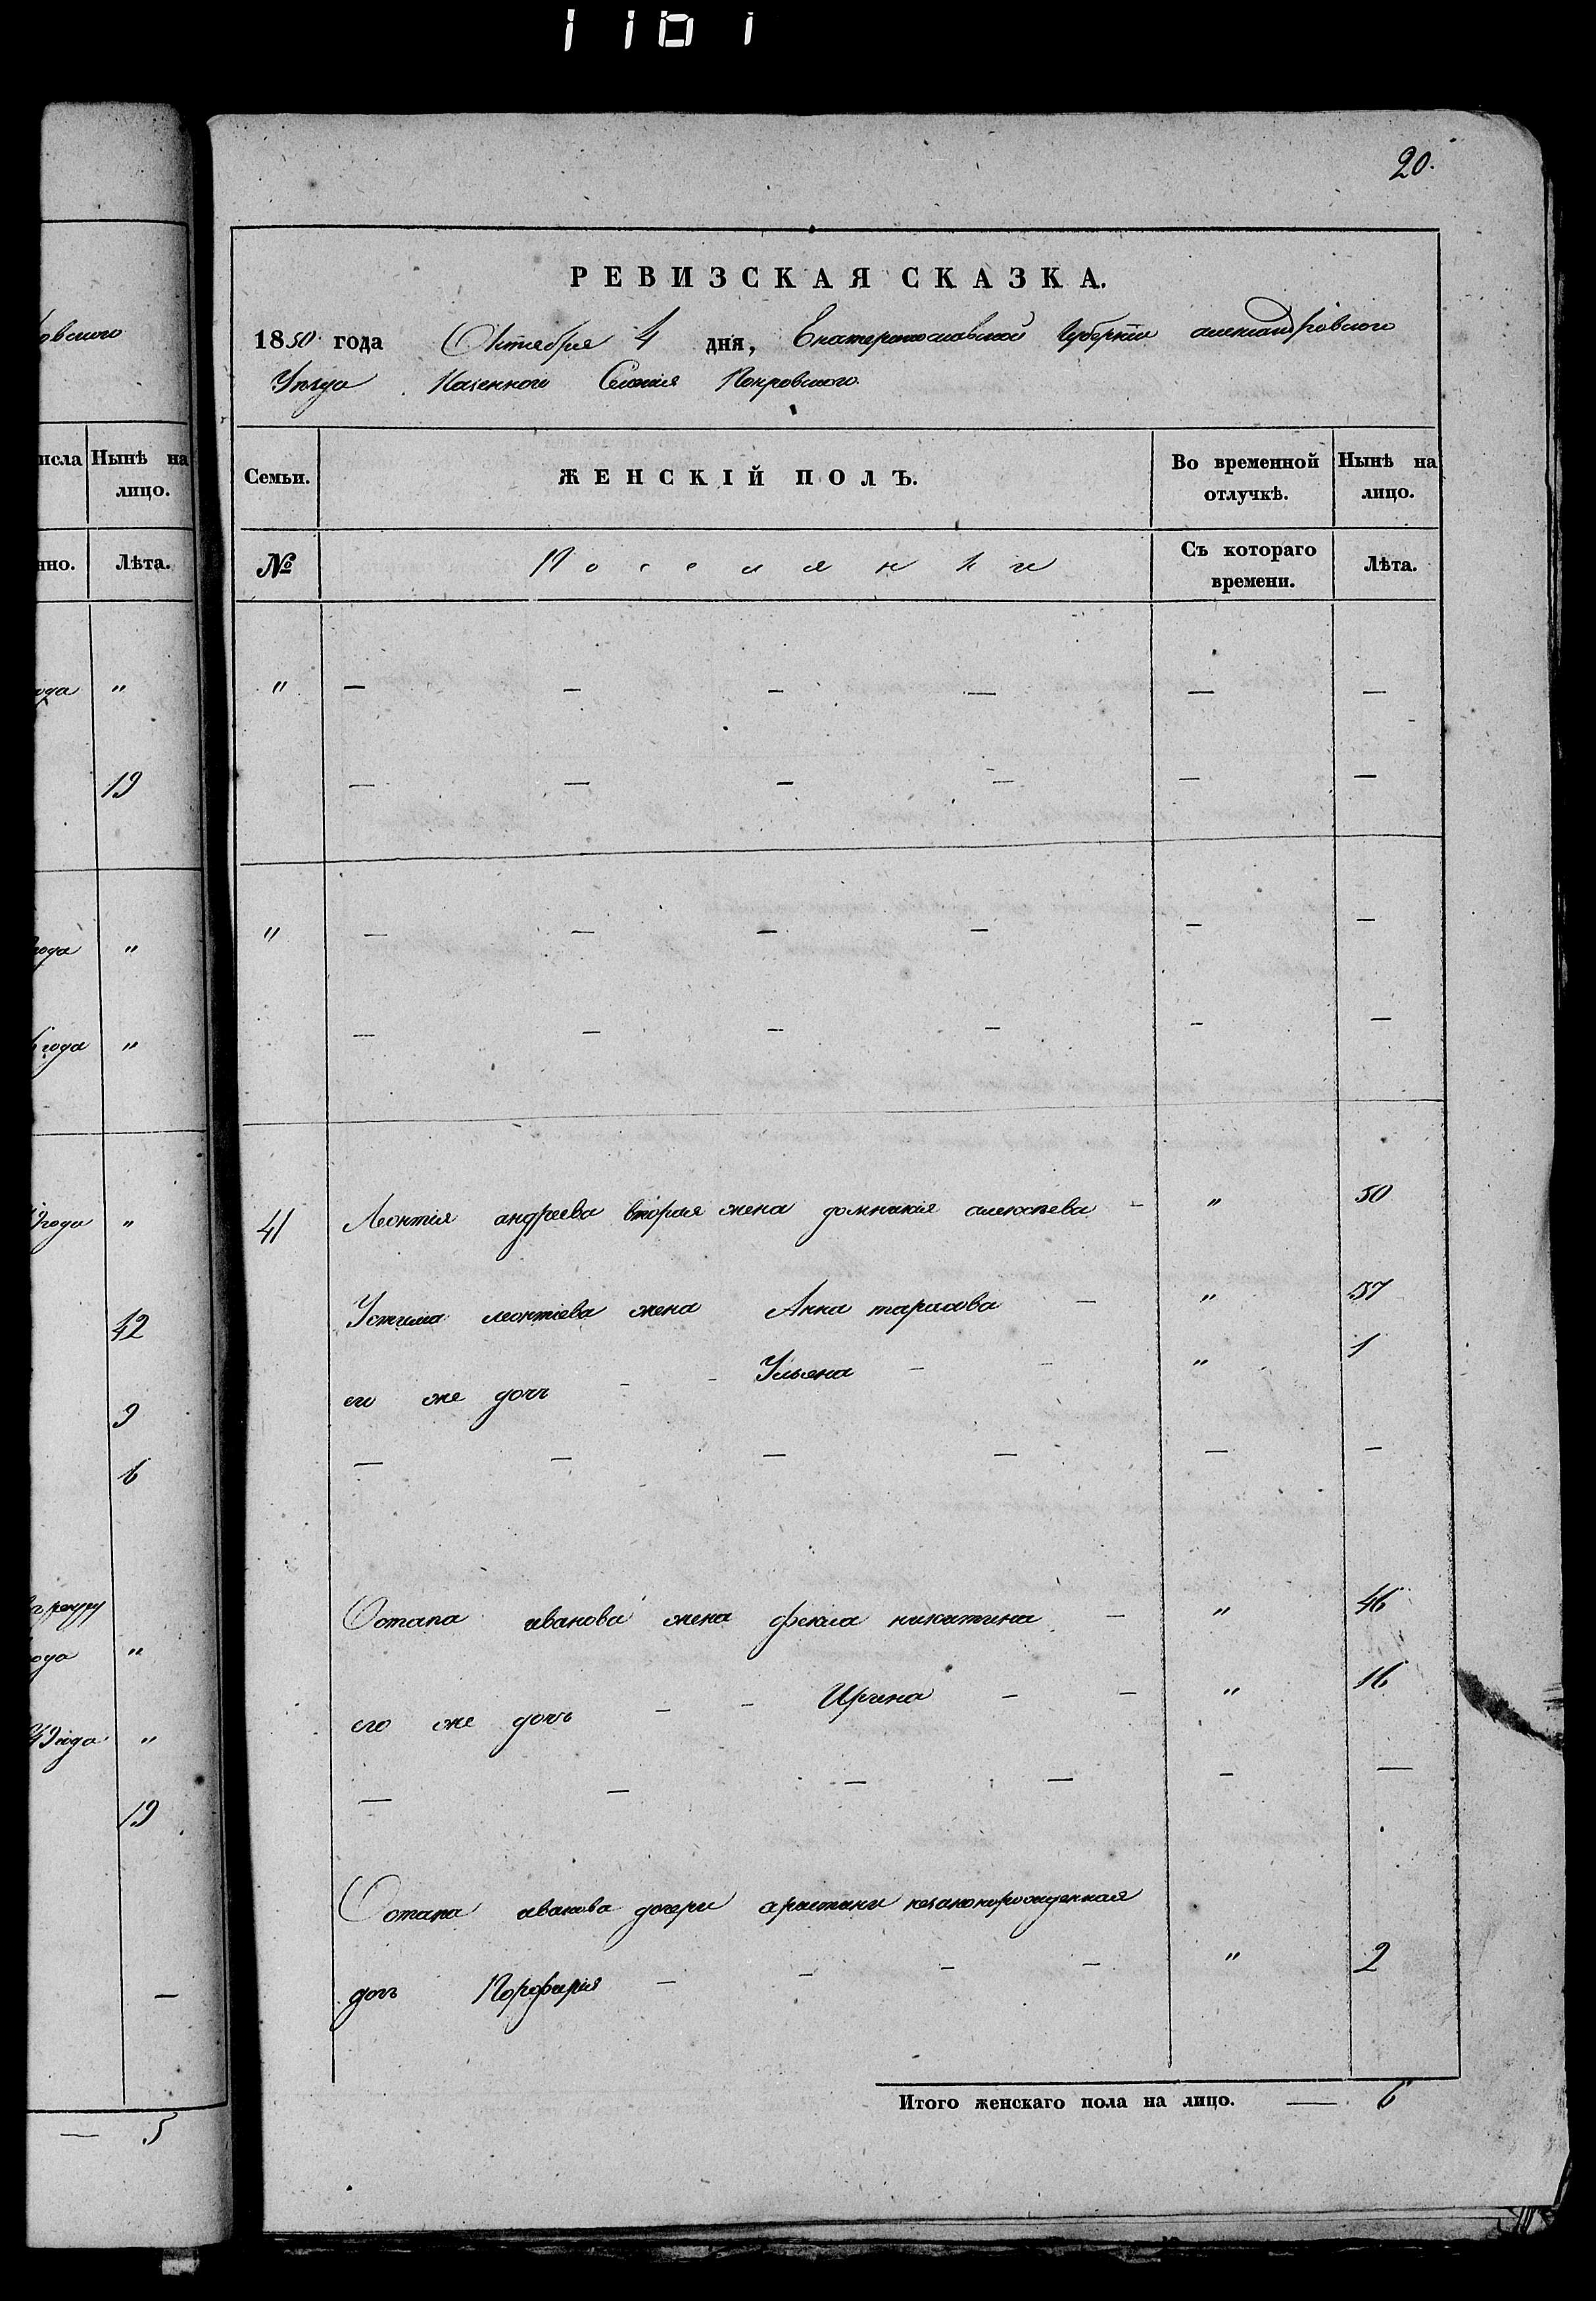 20.
РЕВИЗСКАЯ СКАЗКА.
1850 года Октября 4 дня, Екатеринославской Губернiи александровского
Уезда Казенного Селенiя Покровского
Семьи. ЖЕНСКІЙ ПОЛЪ. Во временной отлучкѣ. Нынѣ на лицо.
№ Поселянки Съ котораго времени. Лѣта.
" — — — — — —
— — — — — —
" — — — — — —
— — — — — —
41 Леонтiя андреева вторая жена домникiя алексѣева - " 50
Устима леонтiева жена Анна тарасова - " 37
его же дочь - - Ульяна - - " 1
— — — — — —
Остапа иванова жена фекла никитина - " 46
его же дочь - - Ирина - - " 16
— — — — - —
Остапа иванова дочери христины незаконнорожденная
дочь Порфирiя - - - - " 2
Итого женскаго пола на лицо. — 6
овского
исла Нынѣ на лицо.
нно. Лѣта.
года "
19
года "
года "
года "
12
9
6
ода "
49 года "
19
—
— 5